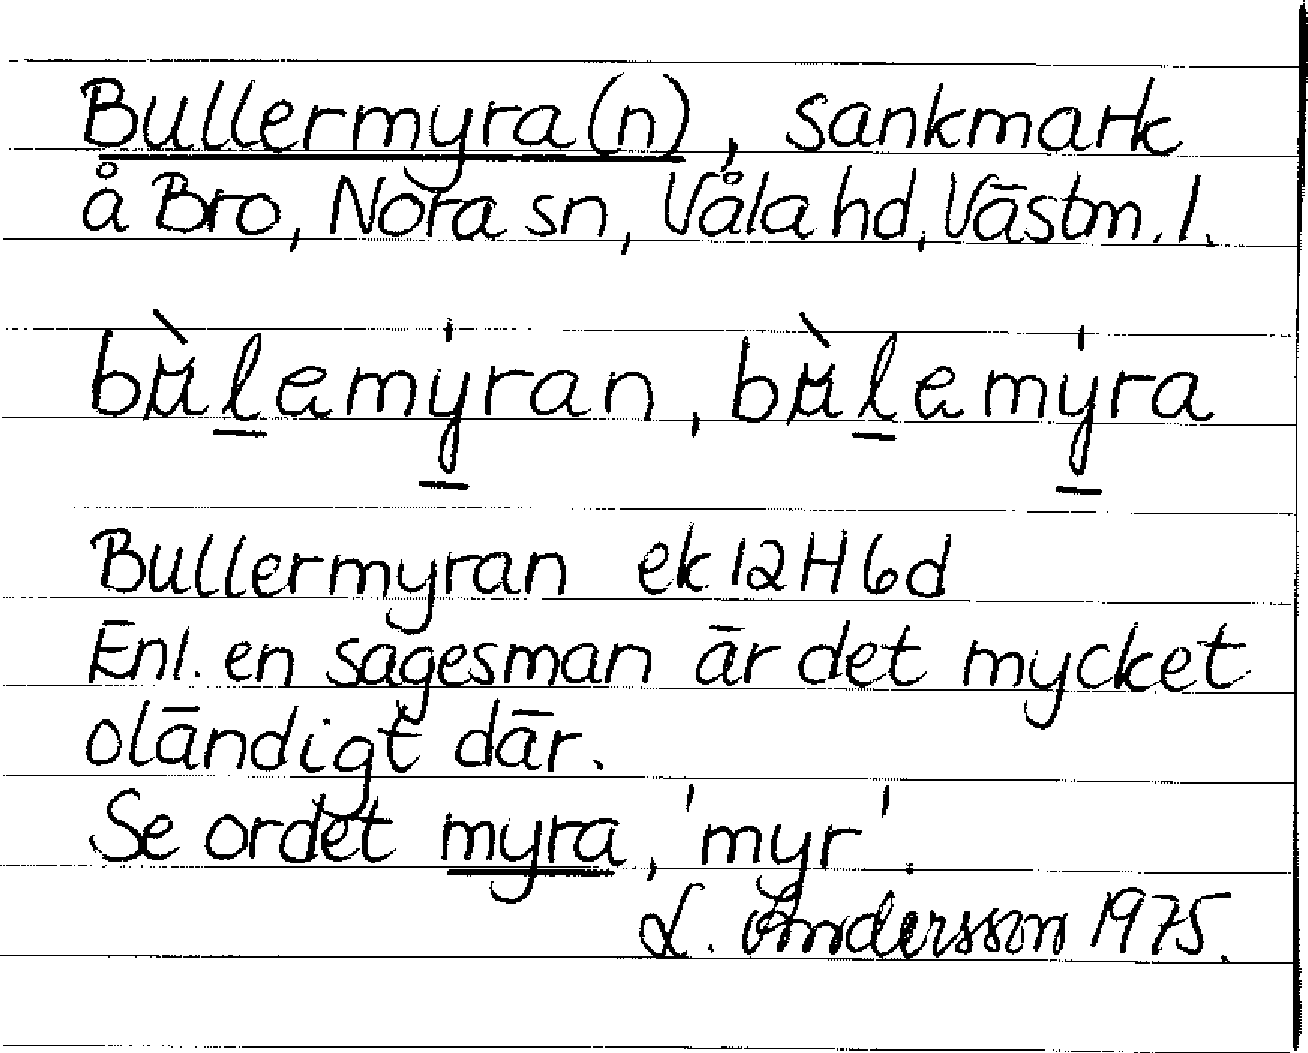 Bullermyra(n), sankmark
å Bro, Nora sn, Våla hd, Västm. l.
bùlemýran, bùlemýra
Bullermyran ek 12H6d
Enl. en sagesman är det mycket
oländigt där.
Se ordet myra, 'myr'.
L. Andersson 1975.